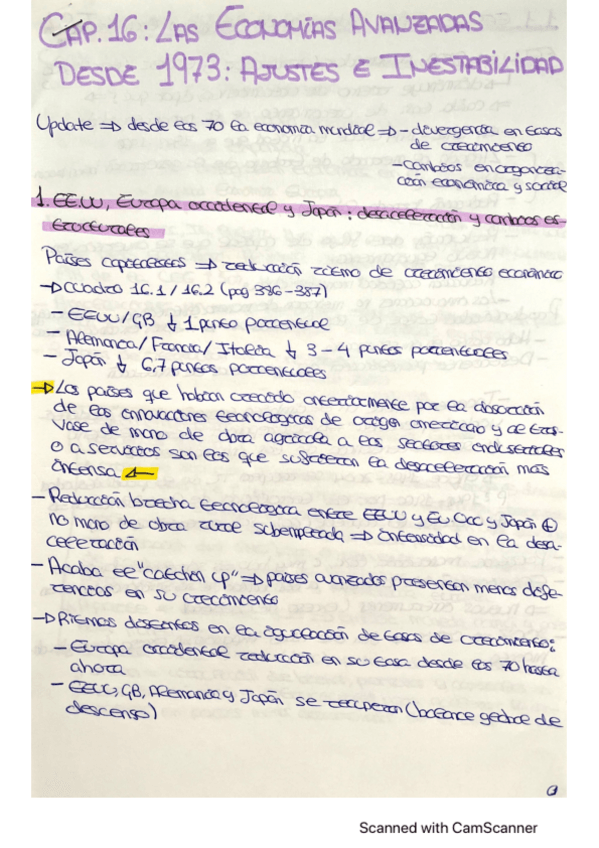 CAP. 16: LAS ECONOMÍAS AVANZADAS
DESDE 1973: AJUSTES E INESTABILIDAD
Update ⇒ desde los 70 la economía mundial ⇒ - divergencia en tasas
de crecimiento
- cambios en organiza-
ción económica y social
1. EEUU, Europa occidental y Japón: desaceleración y cambios es-
tructurales
Países capitalistas ⇒ reducción ritmo de crecimiento económico
→ Cuadro 16.1 / 16.2 (pag 386-387)
- EEUU/GB ↓ 1 punto porcentual
- Alemania/Francia/Italia ↓ 3-4 puntos porcentuales
- Japón ↓ 6,7 puntos porcentuales
→ Los países que habían crecido anteriormente por la absorción
de las innovaciones tecnológicas de origen americano y de tras-
vase de mano de obra agrícola a los sectores industriales
o a servicios son los que sufrieron la desaceleración más
intensa ←
- Reducción brecha tecnológica entre EEUU y Eu Occ y Japón ⊕
no mano de obra rural subempleada ⇒ intensidad en la desa-
celeración
- Acaba el "catching up" ⇒ países avanzados presentan menos dife-
rencias en su crecimiento
→ Ritmos desiguales en la igualación de tasas de crecimiento:
- Europa occidental reducción en su tasa desde los 70 hasta
ahora
- EEUU, GB, Alemania y Japón se recuperan (balance global de
descenso)
Scanned with CamScanner